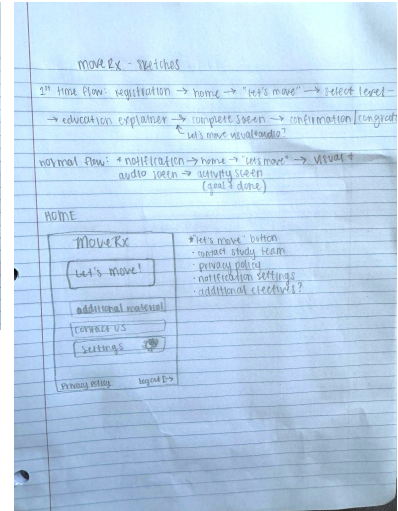 moveRx - sketches
1st time flow: registration → home → "let's move" → select level -
→ education explainer → complete screen → confirmation/congrat
let's move visual+audio?
normal flow: * notification → home → "let's move" → visual +
audio screen → activity screen
(goal + done)
HOME
MoveRx
Let's move!
additional material
contact us
settings
Privacy policy
logout
* "let's move" button
· contact study team
· privacy policy
· notification settings
· additional electives?